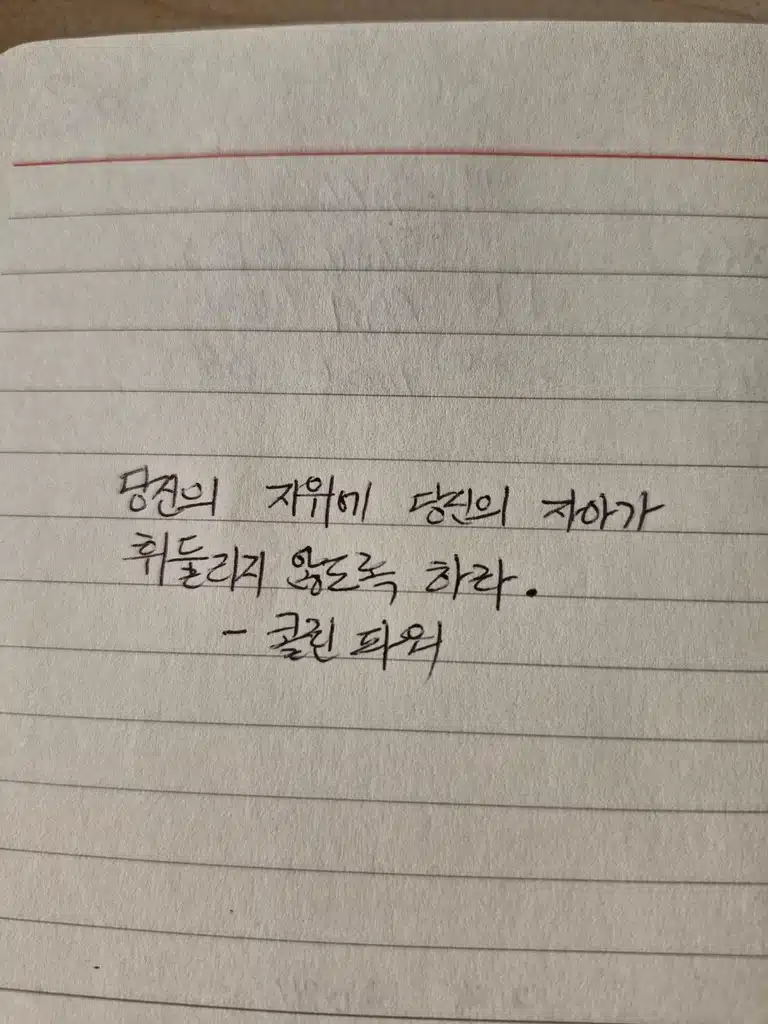 당신의 지위에 당신의 자아가
휘둘리지 않도록 하라.
- 콜린 파월